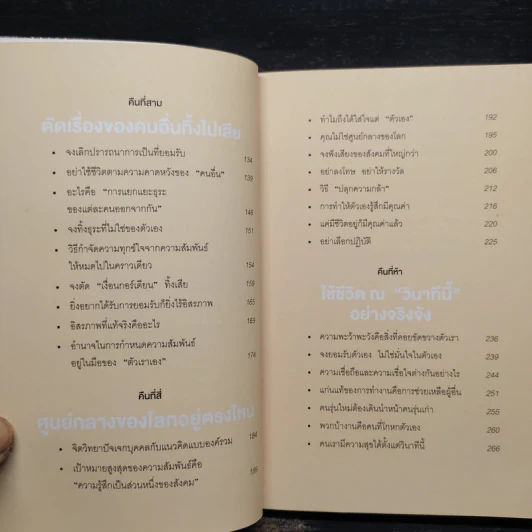 คืนที่สาม
คิดเรื่องของคนอื่นทิ้งไปเสีย
• จงเลิกปรารถนาการเป็นที่ยอมรับ 134
• อย่าใช้ชีวิตตามความคาดหวังของ “คนอื่น” 139
• อะไรคือ “การแยกแยะธุระ
ของแต่ละคนออกจากกัน” 146
• จงทิ้งธุระที่ไม่ใช่ของตัวเอง 151
• วิธีกำจัดความทุกข์ใจจากความสัมพันธ์
ให้หมดไปในคราวเดียว 154
• จงตัด “เงื่อนกอร์เดียน” ทิ้งเสีย 159
• ยิ่งอยากได้รับการยอมรับก็ยิ่งไร้อิสรภาพ 165
• อิสรภาพที่แท้จริงคืออะไร 169
• อำนาจในการกำหนดความสัมพันธ์
อยู่ในมือของ “ตัวเราเอง” 174
คืนที่สี่
ศูนย์กลางของโลกอยู่ตรงไหน
• จิตวิทยาปัจเจกบุคคลกับแนวคิดแบบองค์รวม 184
• เป้าหมายสูงสุดของความสัมพันธ์คือ
“ความรู้สึกเป็นส่วนหนึ่งของสังคม”
• ทำไมถึงได้ใส่ใจแต่ “ตัวเอง” 192
• คุณไม่ใช่ศูนย์กลางของโลก 195
• จงฟังเสียงของสังคมที่ใหญ่กว่า 200
• อย่าลงโทษ อย่าให้รางวัล 206
• วิธี “ปลุกความกล้า” 212
• การทำให้ตัวเองรู้สึกมีคุณค่า 216
• แค่มีชีวิตอยู่ก็มีคุณค่าแล้ว 220
• อย่าเลือกปฏิบัติ 225
คืนที่ห้า
ใช้ชีวิต ณ “วินาทีนี้”
อย่างจริงจัง
• ความพะว้าพะวังคือสิ่งที่คอยขัดขวางตัวเรา 236
• จงยอมรับตัวเอง ไม่ใช่มั่นใจในตัวเอง 239
• ความเชื่อถือและความเชื่อใจต่างกันอย่างไร 244
• แก่นแท้ของการทำงานคือการช่วยเหลือผู้อื่น 251
• คนรุ่นใหม่ต้องเดินนำหน้าคนรุ่นเก่า 255
• พวกบ้างานคือคนที่โกหกตัวเอง 260
• คนเรามีความสุขได้ตั้งแต่วินาทีนี้ 266